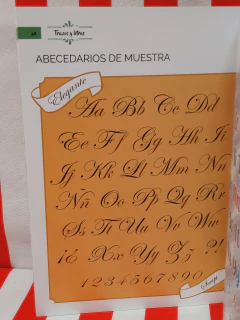 Trazos y letras
ABECEDARIOS DE MUESTRA
Elegante
Aa Bb Cc Dd
Ee Ff Gg Hh Ii
Jj Kk Ll Mm Nn
Ññ Oo Pp Qq Rr
Ss Tt Uu Vv Ww
¡¿ Xx Yy Zz ?!
1 2 3 4 5 6 7 8 9 0
Script